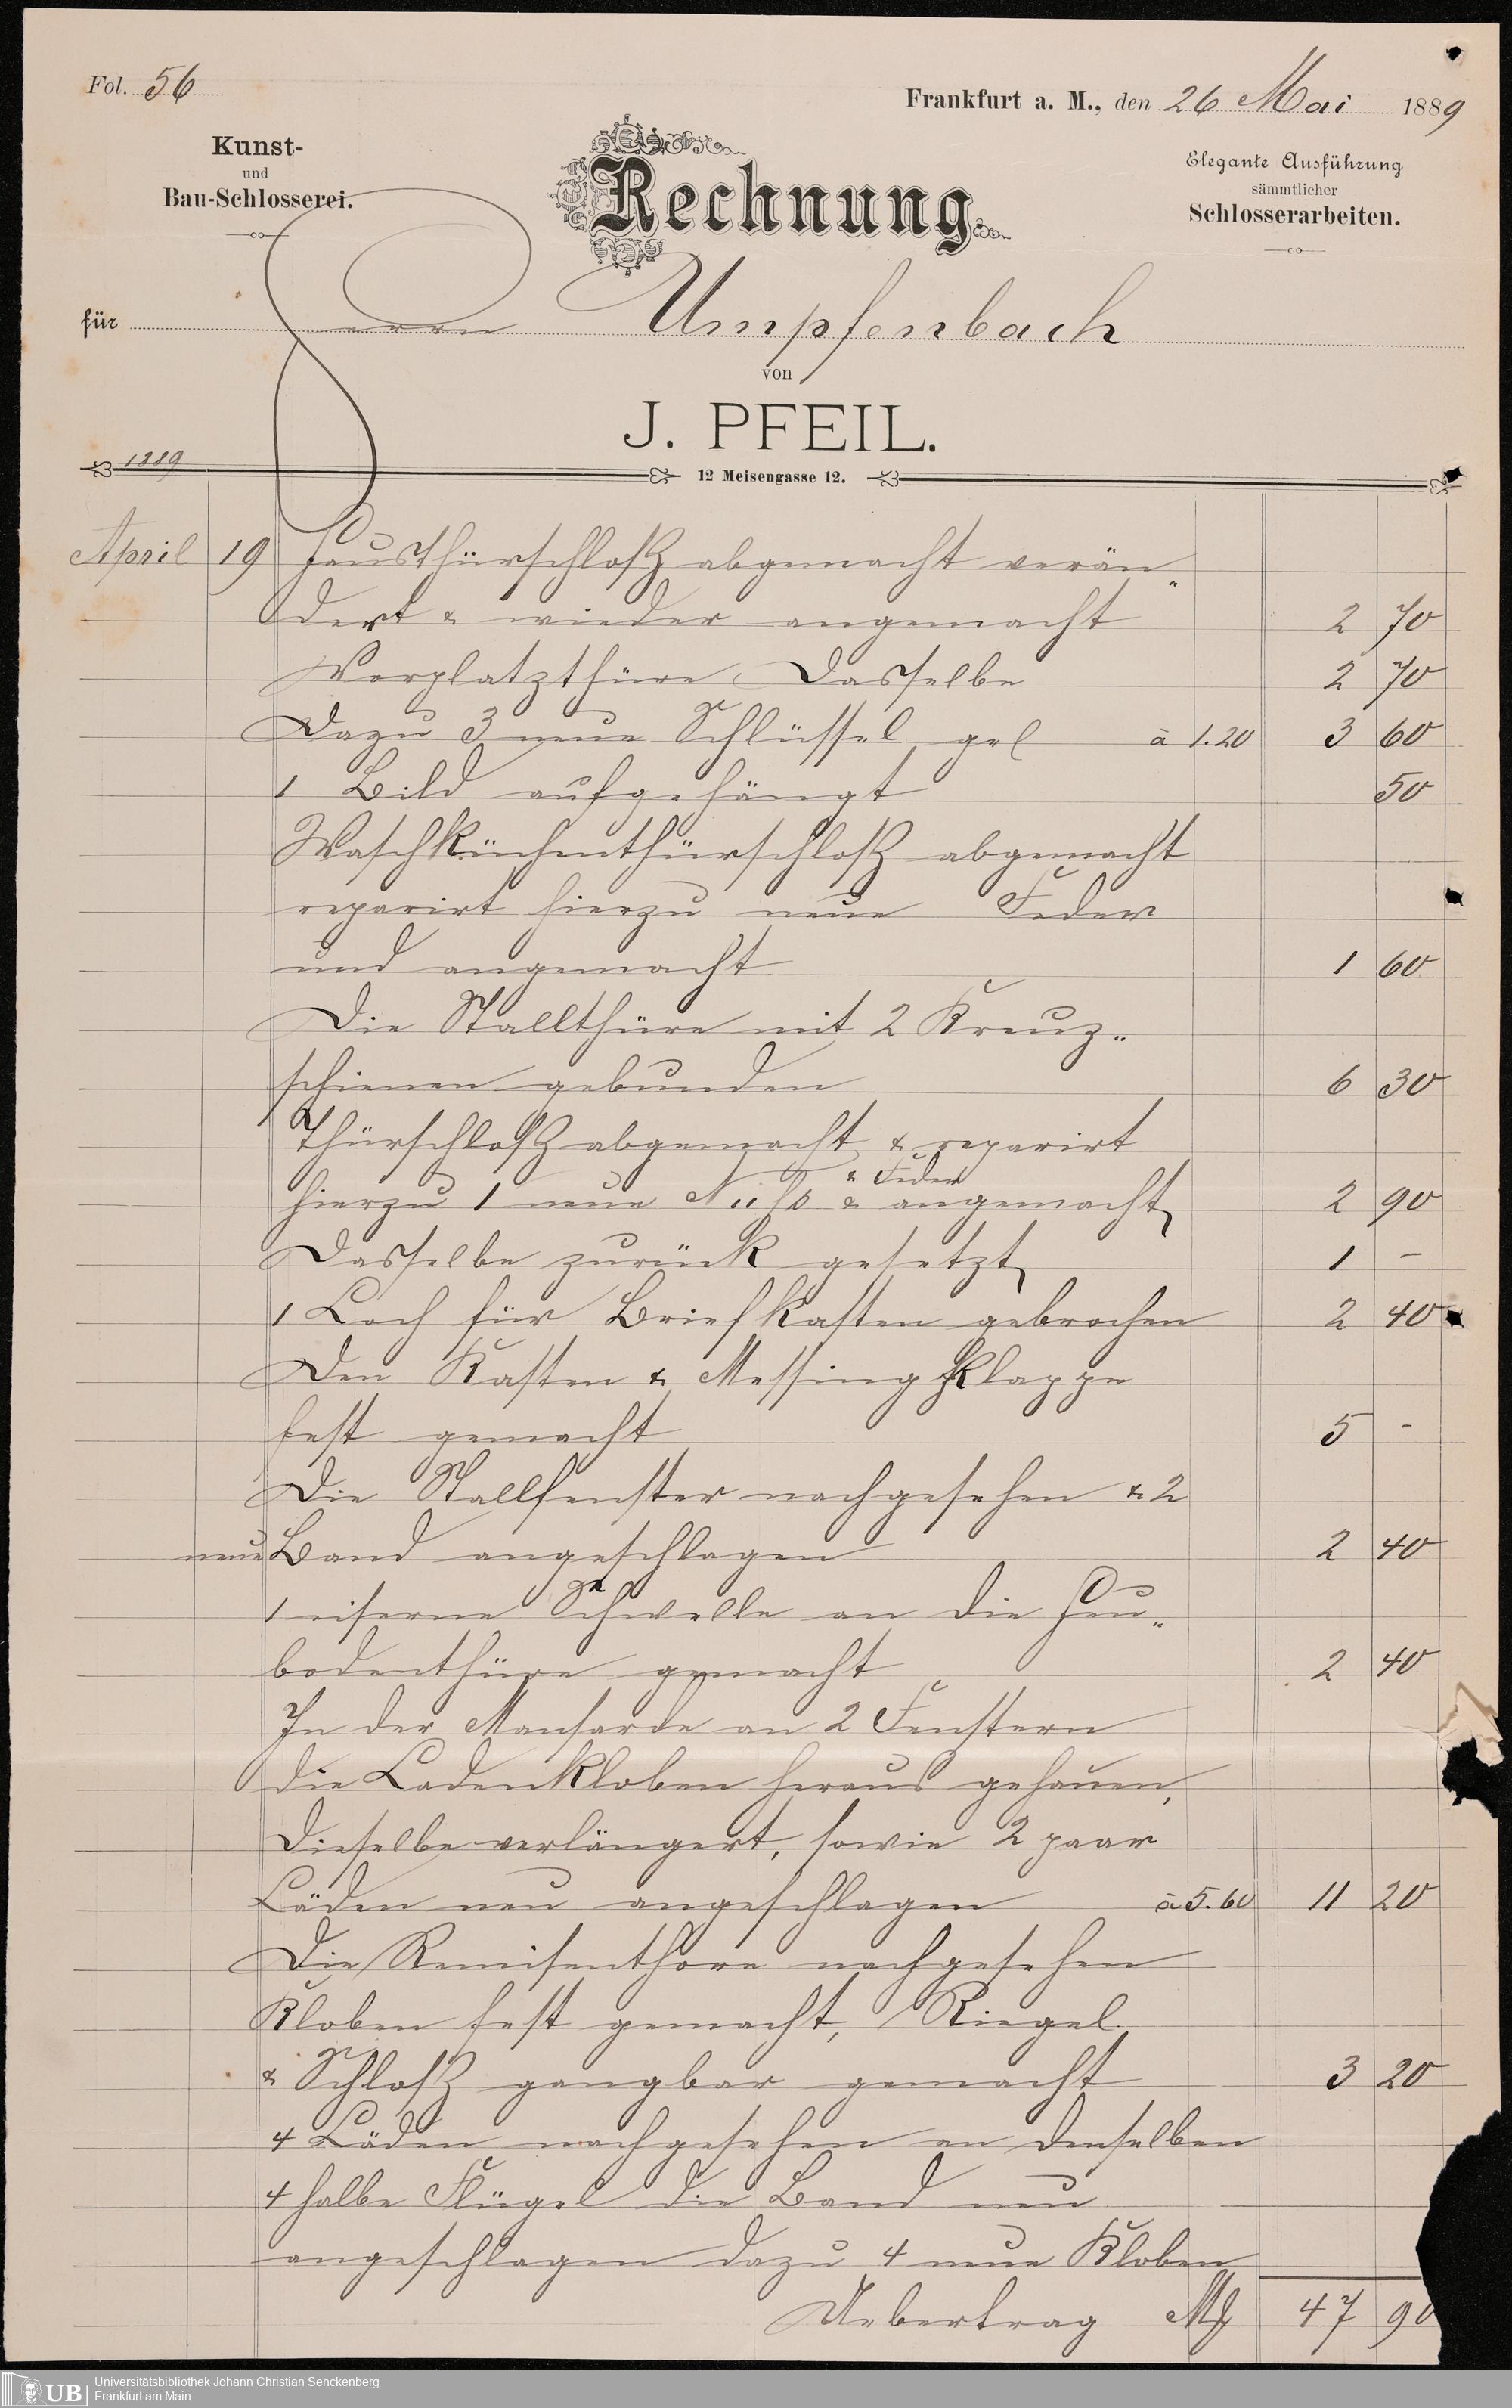 Fol. 56
Frankfurt a. M., den 26 Mai 1889
Kunst-
und
Bau-Schlosserei.
Rechnung
Elegante Ausführung
sämmtlicher
Schlosserarbeiten.
für Herrn Umpfenbach
von
J. PFEIL.
1889
12 Meisengasse 12.
April 19 Hausthürschloß abgemacht verän„
dert & wieder angemacht 2 70
Vorplatzthüre Dasselbe 2 70
Dazu 3 neue Schlüssel gel à 1.20 3 60
1 Bild aufgehängt 50
Waschküchenthürschloß abgemacht
reparirt hierzu neue Feder
und angemacht 1 60
Die Stallthüre mit 2 Kreuz„
schienen gebunden 6 30
Thürschloß abgemacht & reparirt
& Feder
hierzu 1 neue Nuß & angemacht 2 90
Dasselbe zurück gesetzt 1 –
1 Loch für Briefkasten gebrochen 2 40
Den Kasten & Messingklappe
fest gemacht 5 -
Die Stallfenster nachgesehen & 2
neue Band angeschlagen 2 40
1 eiserne Schwelle an die Heu„
bodenthüre gemacht 2 40
In der Mansarde an 2 Fenstern
die Ladenkloben heraus gehauen,
dieselbe verlängert, sowie 2 paar
Läden neu angeschlagen à 5.60 11 20
Die Remisenthore nachgesehen
Kloben fest gemacht, Riegel
& Schloß gangbar gemacht 3 20
4 Läden nachgesehen an denselben
4 halbe Flügel die Band neu
angeschlagen dazu 4 neue Kloben
Uebertrag M 47 90
UB
Universitätsbibliothek Johann Christian Senckenberg
Frankfurt am Main